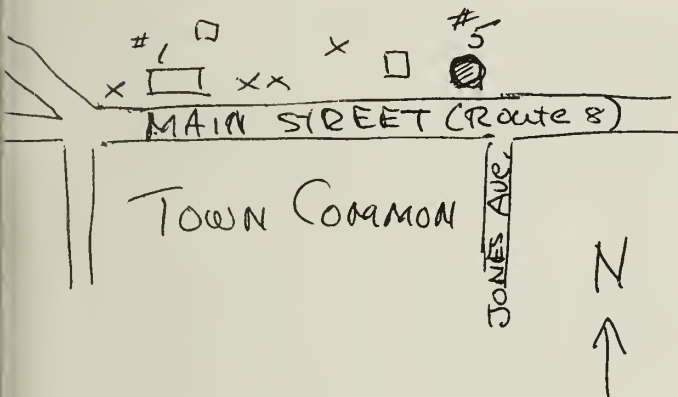 #1
#5
MAIN STREET (Route 8)
TOWN COMMON
JONES AVE.
N